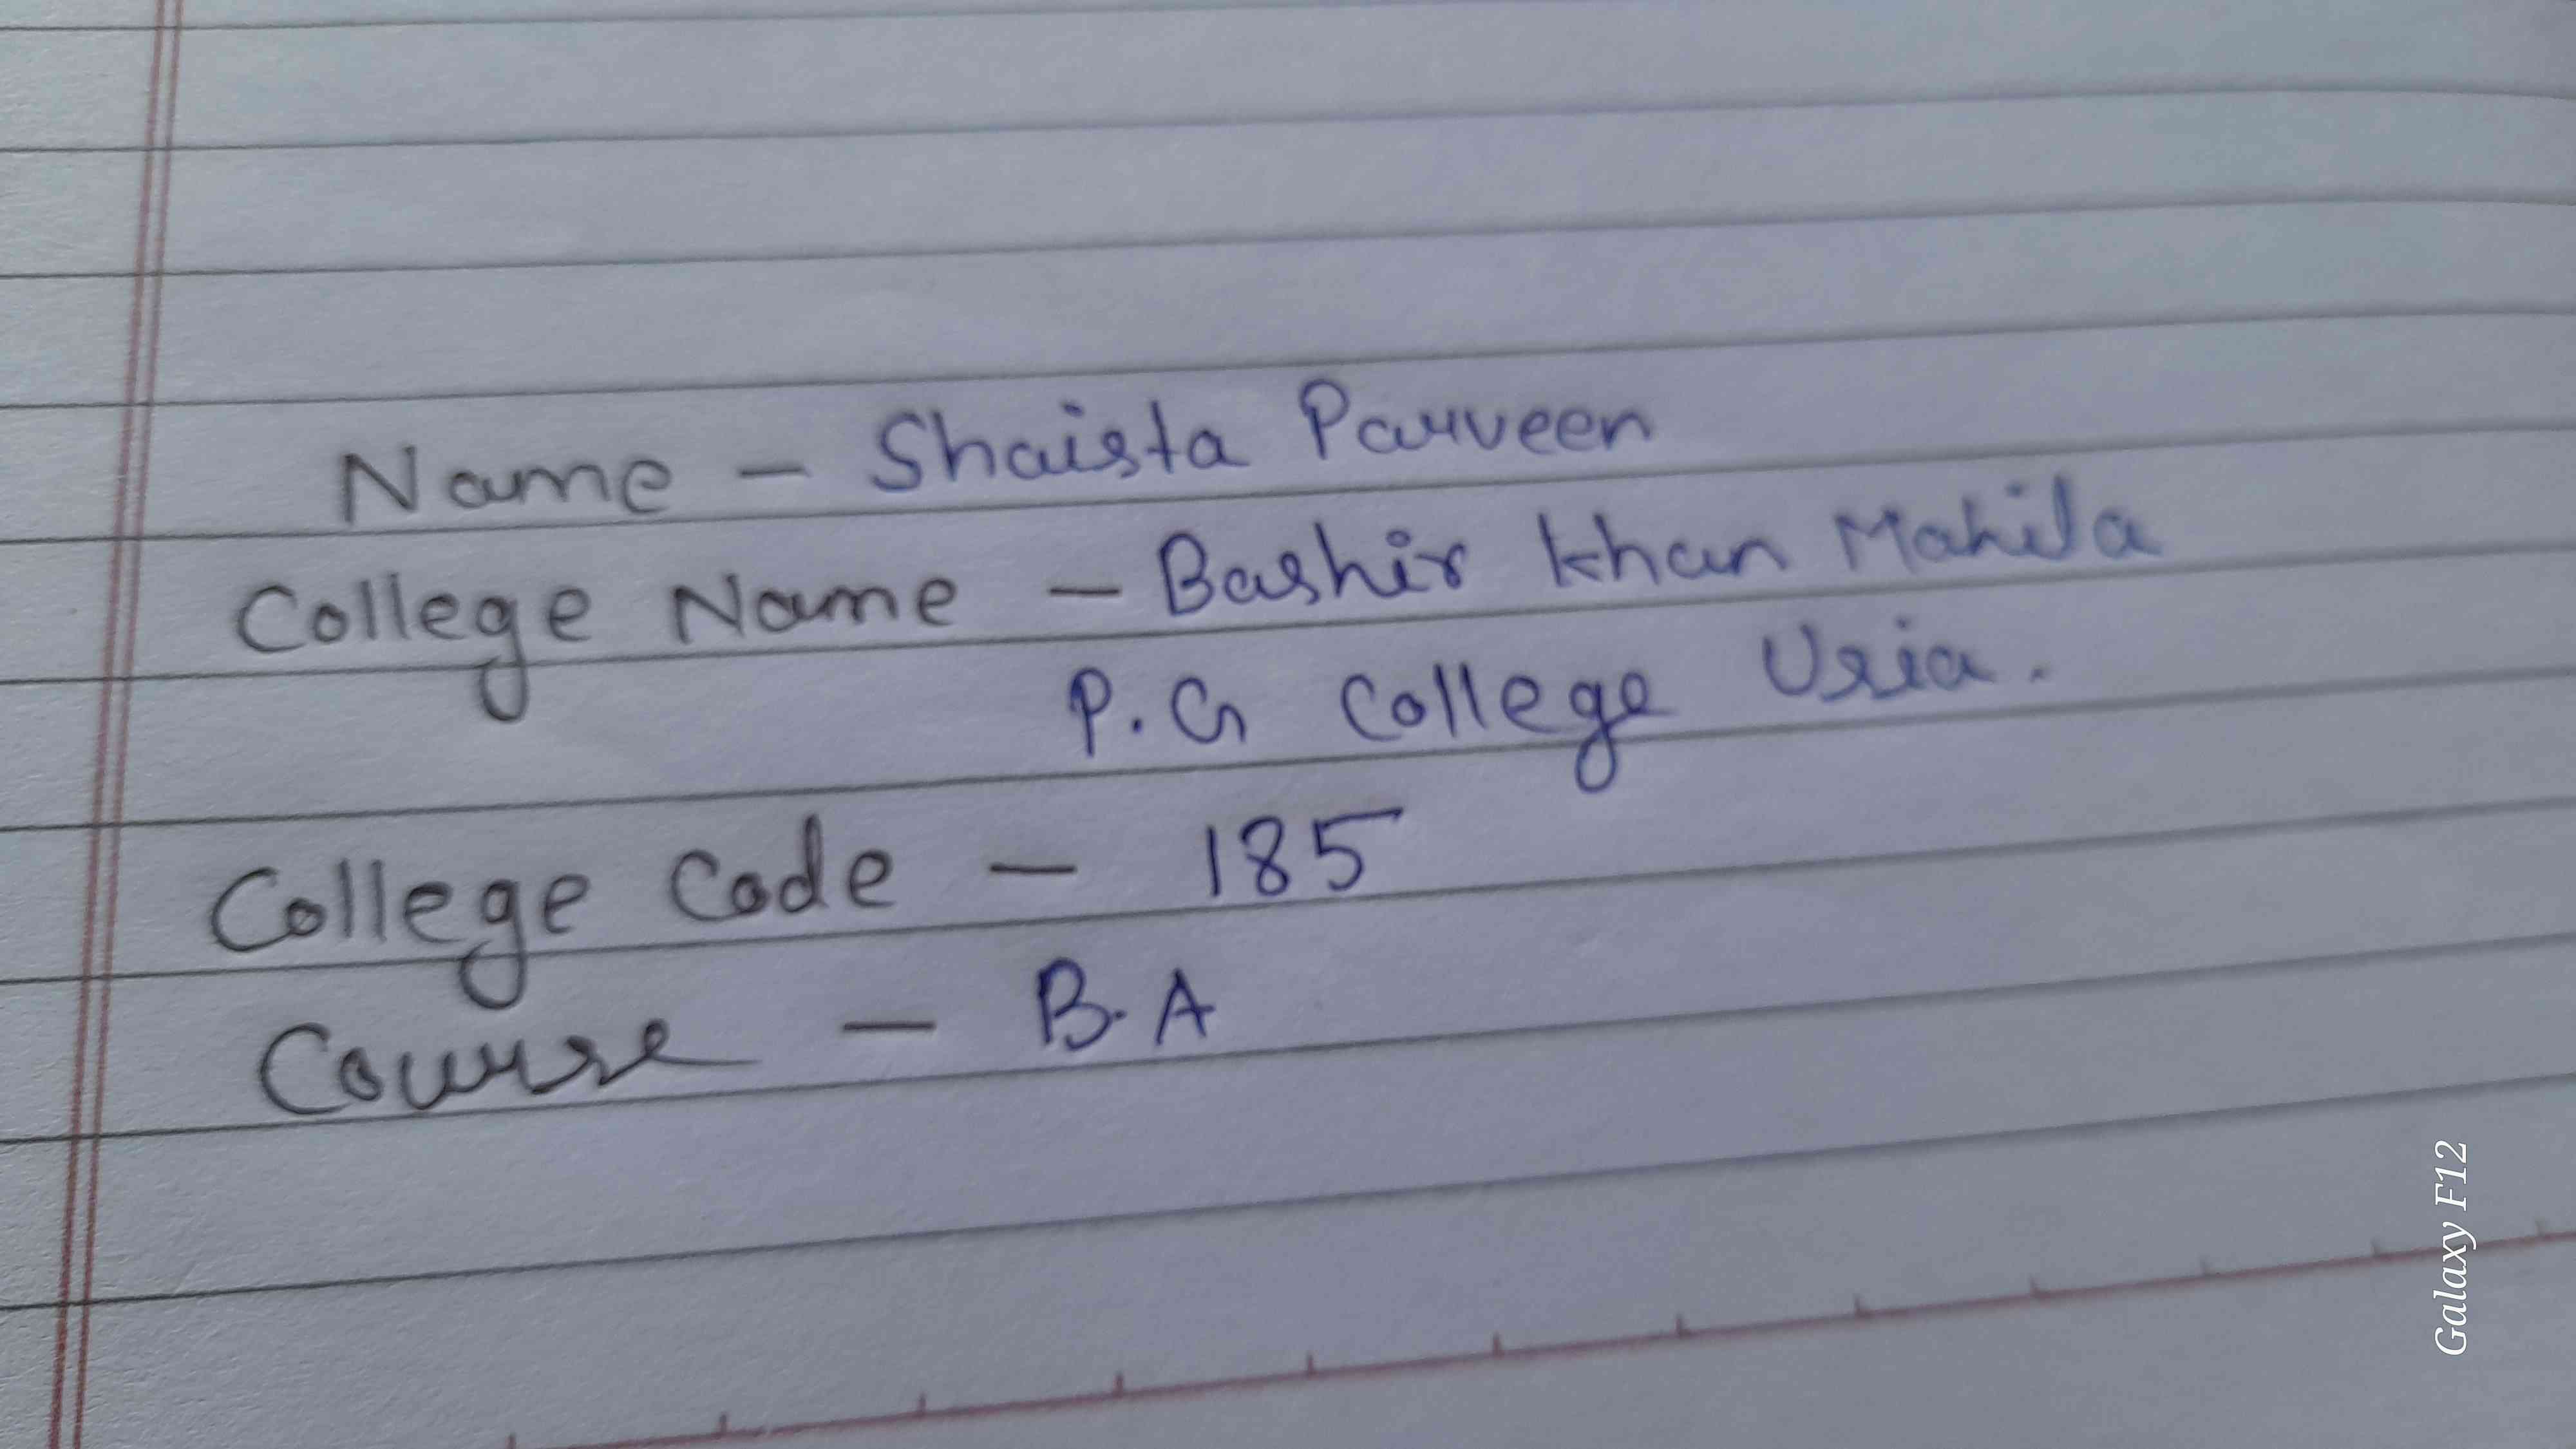 Name - Shaista Parveen
College Name - Bashir Khan Mahila
P.G College Usia.
College Code - 185
Course - B.A
Galaxy F12